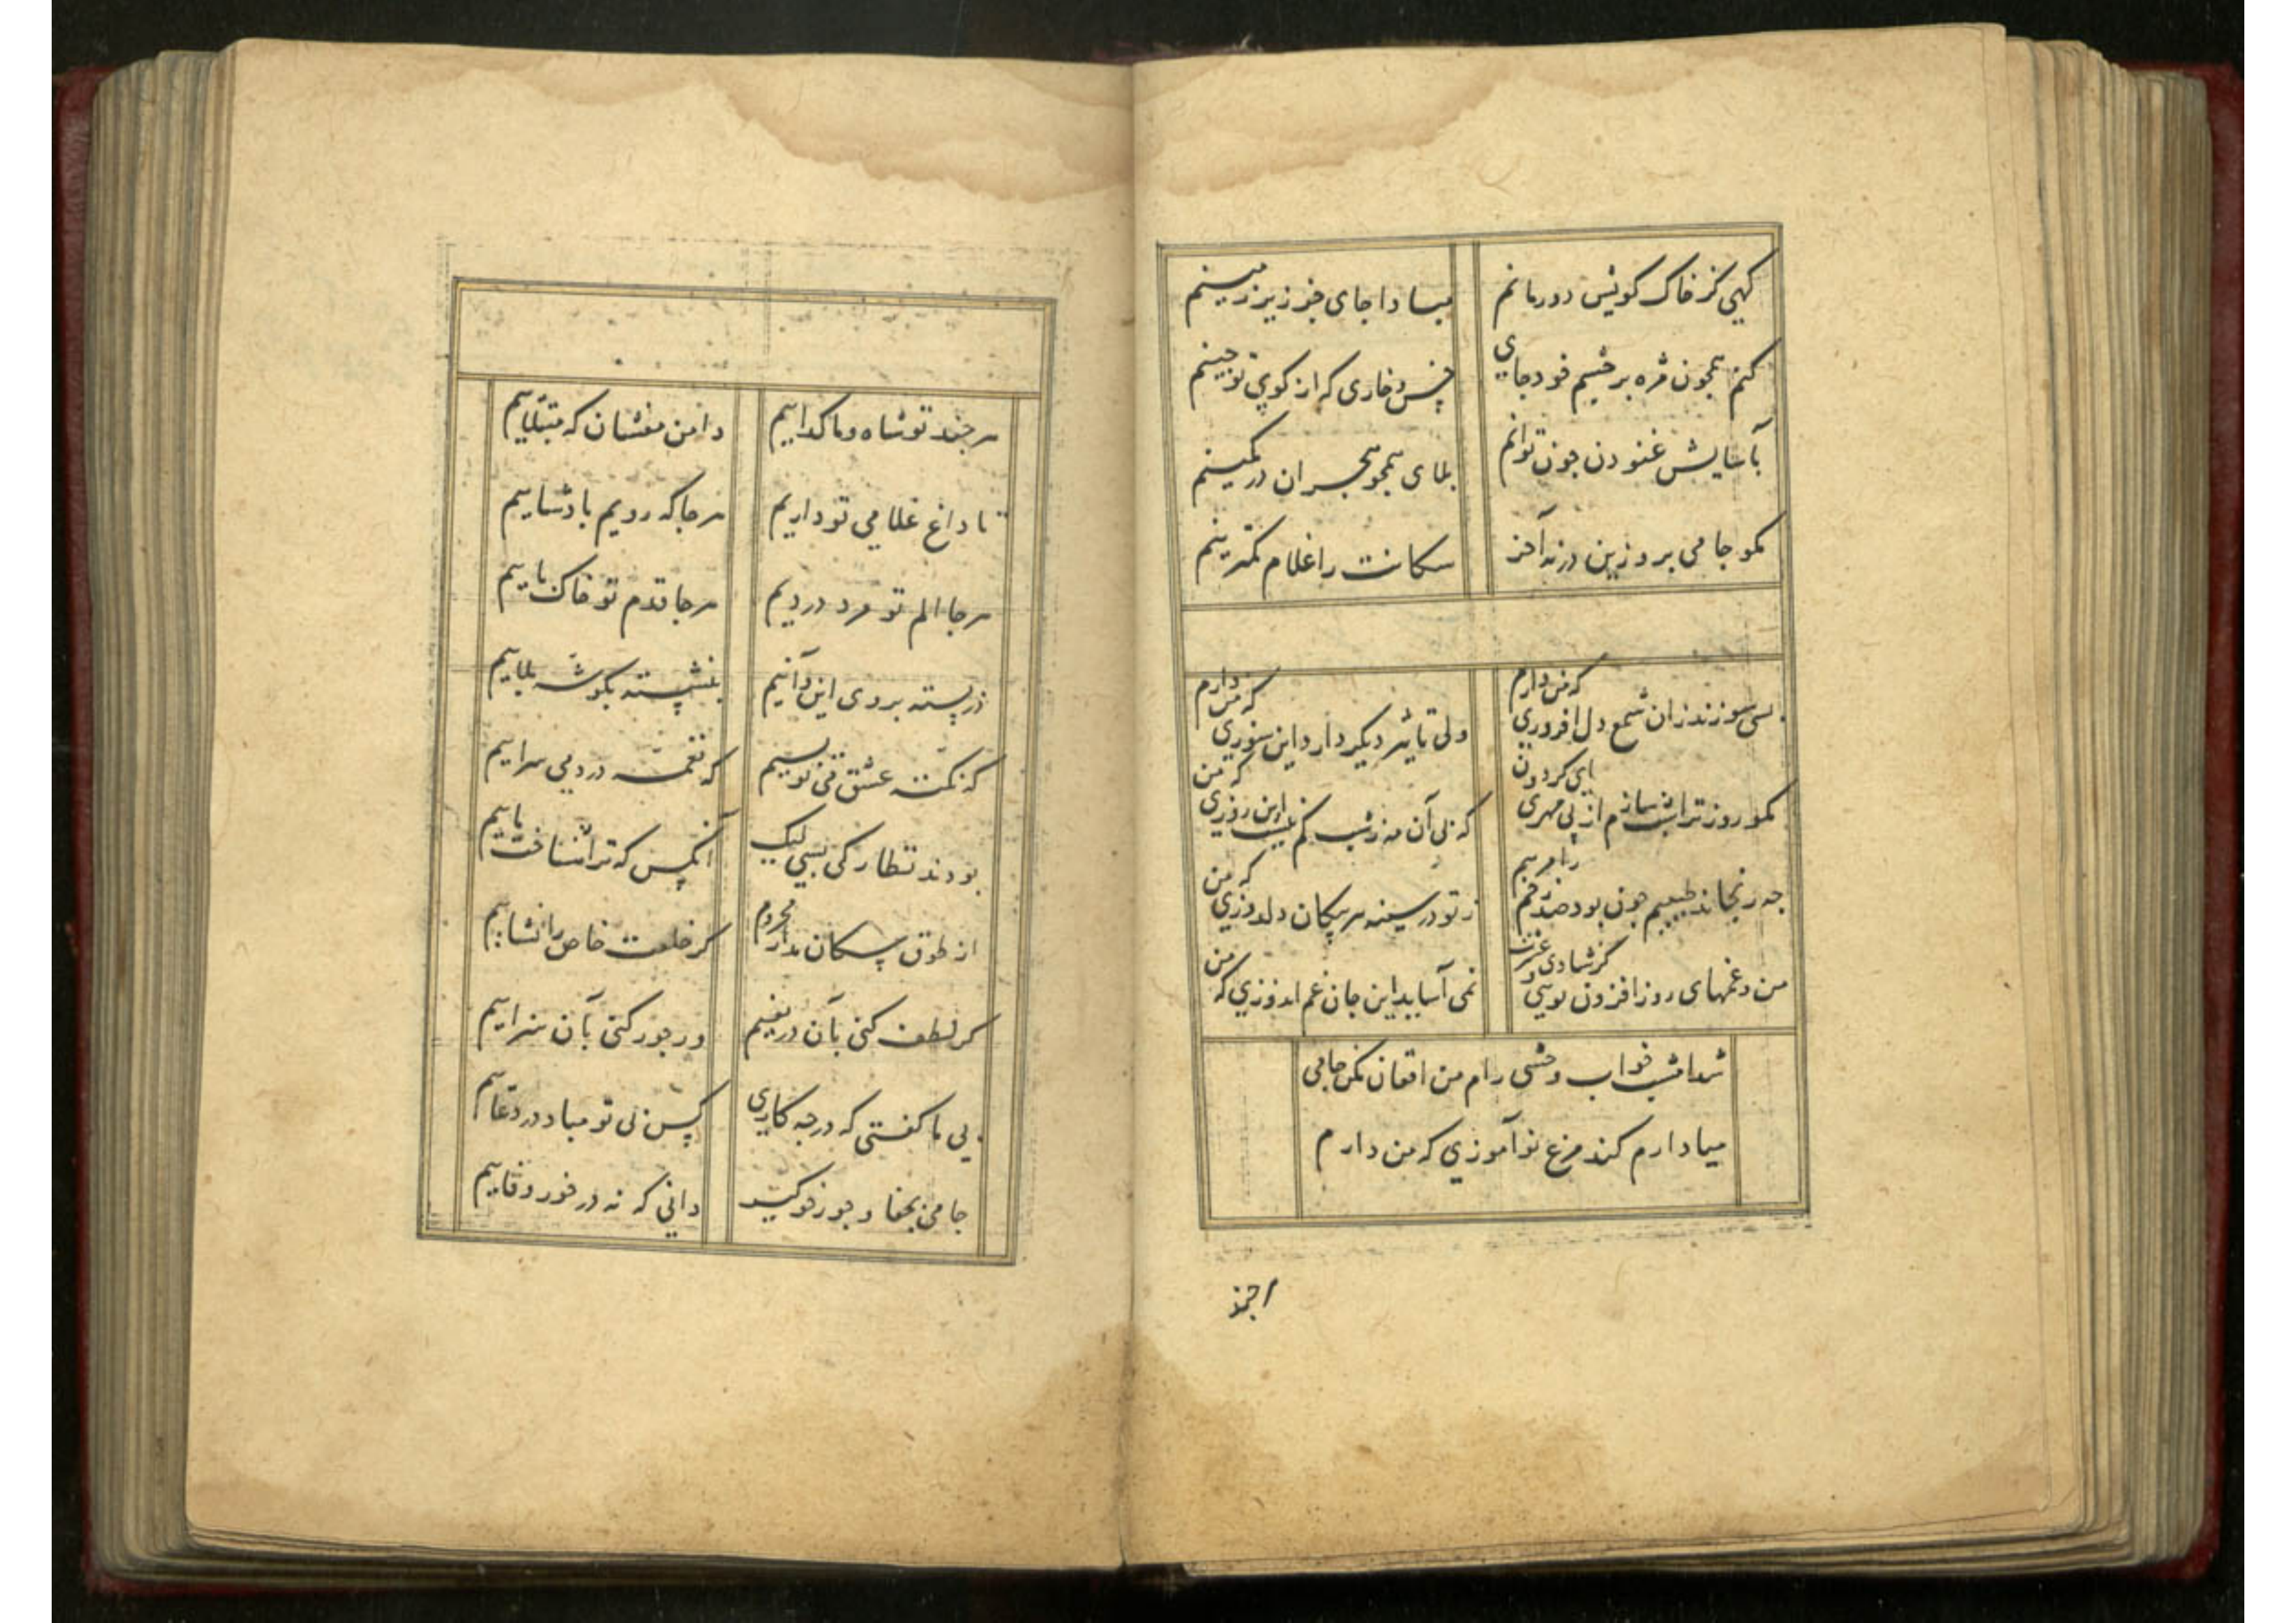 کهی کز خاک کویش دور مانم مبادا جای جز زیر زمینم
کنم همچون مژه بر چشم خود جای خس و خاری که از کوی تو چینم
بآسایش غنودن چون توانم بلای همچو هجران در کمینم
مکو جامی برو زین در نه آخر سکانت را غلام کمترینم
بسی سوزند زان شمع دل افروزی که من دارم ولی تاثیر دیکر دارد این سوزی که من دارم
مکو روز ترا شب سازم از بی مهری ای کردون که بی آن مه ز شب کم نیست این روزی که من
چه رنجاند طبیبم چون بود صد زخم را مرهم ز تو در سینه هر پیکان دلدوزی که من
من و غمهای روز افزون تویی کز شادی و عشرت نمی آساید این جان غم اندوزی که من
شد امشب خواب وحشی رام من افغان مکن جامی
مبادا رم کند مرغ نوآموزی که من دارم
هر چند
هر چند تو شاه و ما کداییم دامن مفشان که مبتلاییم
تا داغ غلامی تو داریم هر جا که رویم بادشاییم
هر جا الم تو مرد دردیم هر جا قدم تو خاک پاییم
در بسته بروی این و آنیم بنشسته بکوشه بلاییم
که نکته عشق می نویسیم که نغمه درد می سراییم
بودند نظارکی بسی لیک آنکس که ترا شناخت ماییم
از طوق سکان مدار محروم کر خلعت خاص را نشاییم
کر لطف کنی بآن دریغیم ور جور کنی بآن سزاییم
بی ما کفتی که در چه کاری کس بی تو مباد در دعاییم
جامی بجفا و جور خو کیر دانی که نه در خور وفاییم